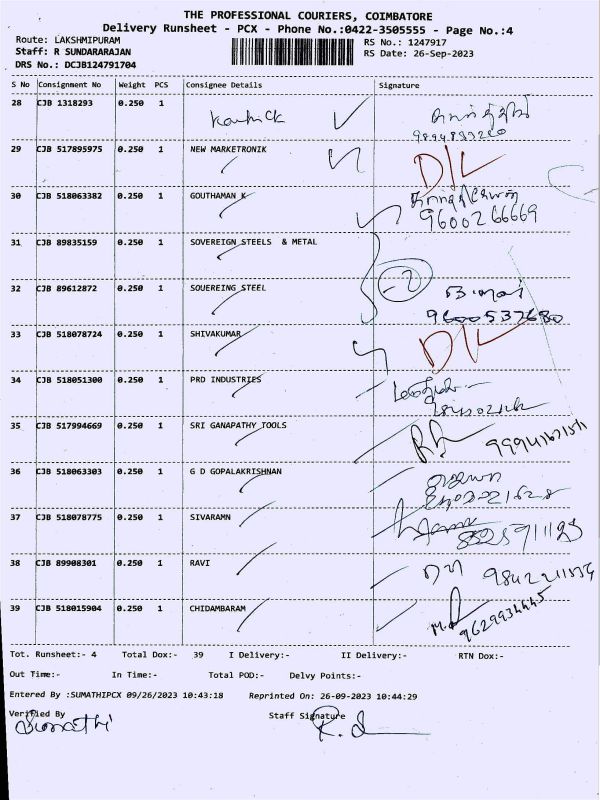 THE PROFESSIONAL COURIERS, COIMBATORE
Delivery Runsheet - PCX - Phone No.:0422-3505555 - Page No.:4
Route: LAKSHMIPURAM
RS No.: 1247917
Staff: R SUNDARARAJAN
RS Date: 26-Sep-2023
DRS No.: DCJB124791704
S No Consignment No Weight PCS Consignee Details Signature
28 CJB 1318293 0.250 1 Karthick
29 CJB 517895975 0.250 1 NEW MARKETRONIK D/L
30 CJB 518063382 0.250 1 GOUTHAMAN K
9600266669
31 CJB 89835159 0.250 1 SOVEREIGN STEELS & METAL
32 CJB 89612872 0.250 1 SOUEREING STEEL
9600537680
33 CJB 518078724 0.250 1 SHIVAKUMAR D/L
34 CJB 518051300 0.250 1 PRD INDUSTRIES
35 CJB 517994669 0.250 1 SRI GANAPATHY TOOLS
36 CJB 518063303 0.250 1 G D GOPALAKRISHNAN
37 CJB 518078775 0.250 1 SIVARAMN
38 CJB 89908301 0.250 1 RAVI
39 CJB 518015904 0.250 1 CHIDAMBARAM
9629934445
Tot. Runsheet:- 4 Total Dox:- 39 I Delivery:- II Delivery:- RTN Dox:-
Out Time:- In Time:- Total POD:- Delvy Points:-
Entered By :SUMATHIPCX 09/26/2023 10:43:18 Reprinted On: 26-09-2023 10:44:29
Verified By Staff Signature
Sumathi